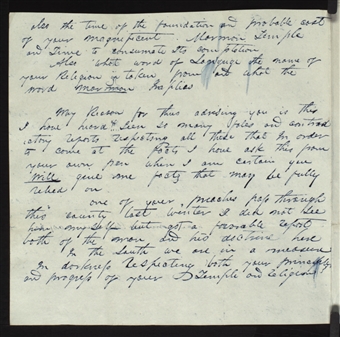 also the time of the foundation and probable cost
of your magnificent Mormon Temple
and Time to consumate its completion
Also what word of Language the name of
your Religion is taken from and what the
word Mormon Implies
My Reason for thus adresing you is this
I have heard & Seen so many tales and contrad
ictory reports respecting all these that In order
to come at the facts I have ask this from
your own pen when I am certain you
Will give me facts that may be fully
relied on
one of your preachers pass through
this county last winter I did not See
him my Self but got a favorable report
both of the man and his doctrine here
In the South we are in a measure
In darkness Respecting both your principles
and progress of your Temple and religion